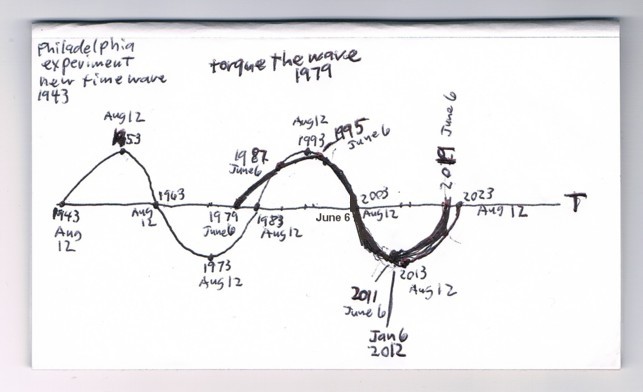 Philadelphia
experiment
new time wave
1943
torque the wave
1979
Aug 12
1953
Aug 12
1993
1995
June 6
1987
June 6
2019 June 6
1943
Aug
12
1963
Aug
12
1979
June 6
1983
Aug 12
June 6
2003
Aug 12
2023
Aug 12
T
1973
Aug 12
2011
June 6
2013
Aug 12
Jan 6
2012